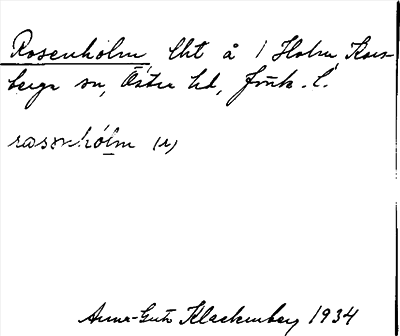 Rosenholm, lht å 1 Holm, Kors-
berga sn, Östra hd, Jönk. l.
rosənhólm (u)
Anna-Greta Klackenberg 1934